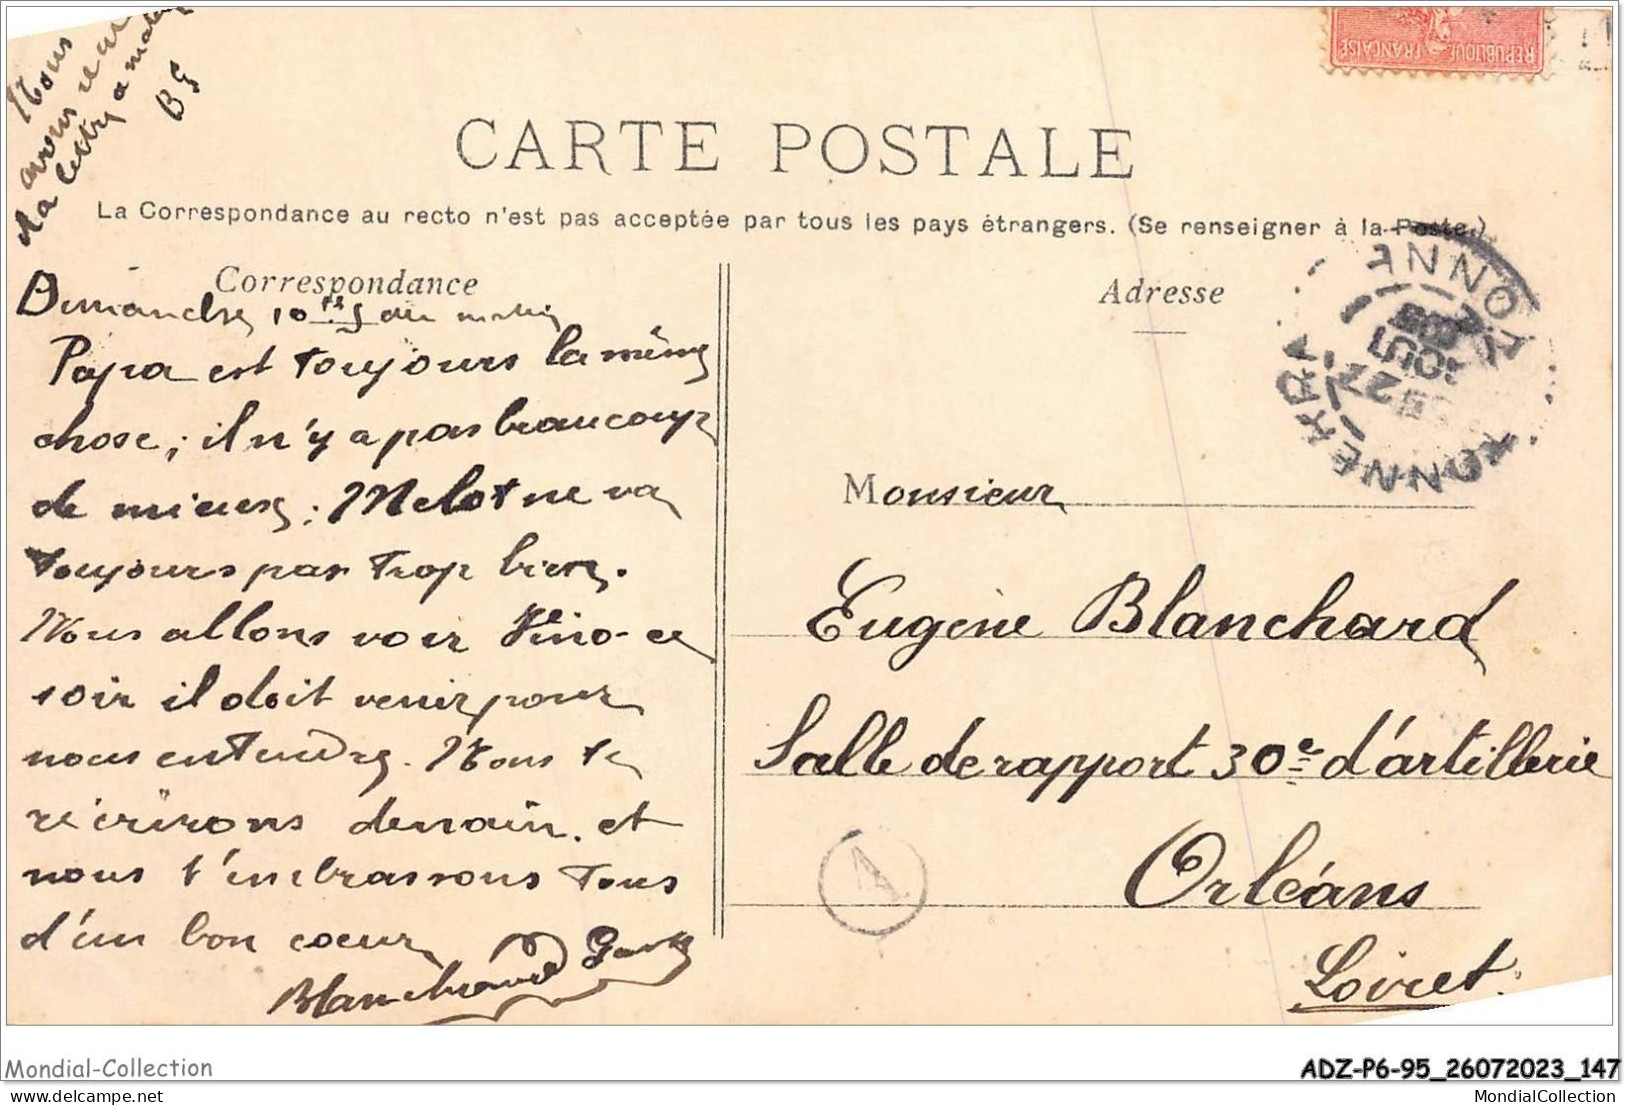 Nous
avons reçu
la lettre ce matin
B G
RÉPUBLIQUE FRANÇAISE
CARTE POSTALE
La Correspondance au recto n'est pas acceptée par tous les pays étrangers. (Se renseigner à la Poste.)
Correspondance
Dimanche 10 du matin
Papa est toujours la même
chose; il n'y a pas beaucoup
de mieux; Melot ne va
toujours pas trop bien.
Nous allons voir ce
soir il doit venir pour
nous entendre. Nous te
récrirons demain. et
nous t'embrassons tous
d'un bon coeur
Blanchard
Adresse
TONNERRE
YONNE
27
AOUT
05
Monsieur
Eugène Blanchard
Salle de rapport 30e d'artillerie
Orléans
Loiret
A
Mondial-Collection
ADZ-P6-95_26072023_147
www.delcampe.net
MondialCollection